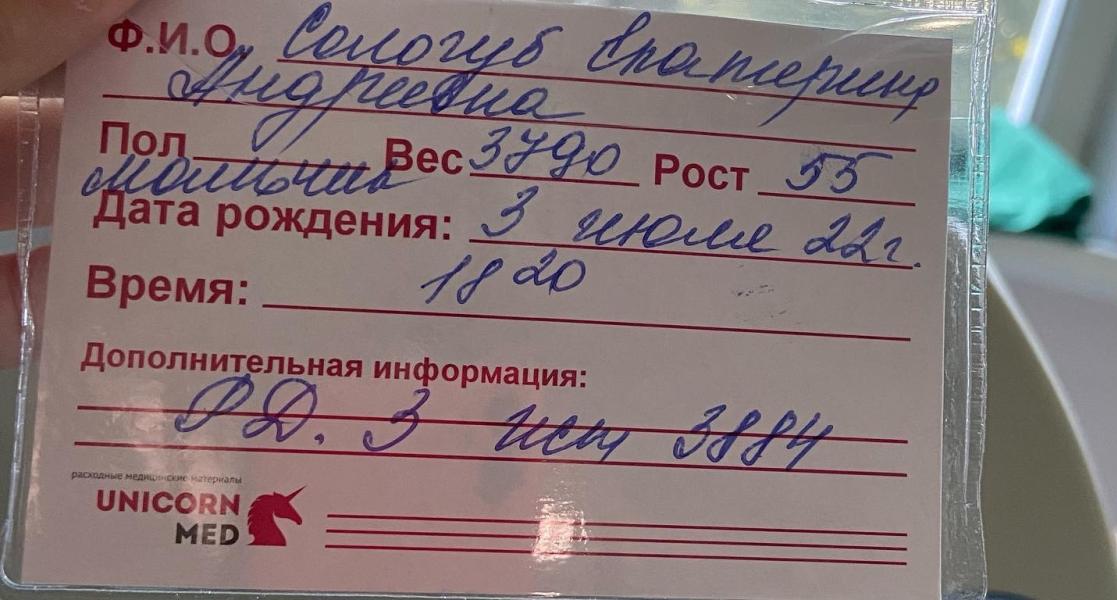 Ф.И.О. Сологуб Екатерина
Андреевна
Пол мальчик Вес 3790 Рост 55
Дата рождения: 3 июля 22г.
Время: 18 20
Дополнительная информация:
РД. 3 ист 3884
расходные медицинские материалы
UNICORN
MED